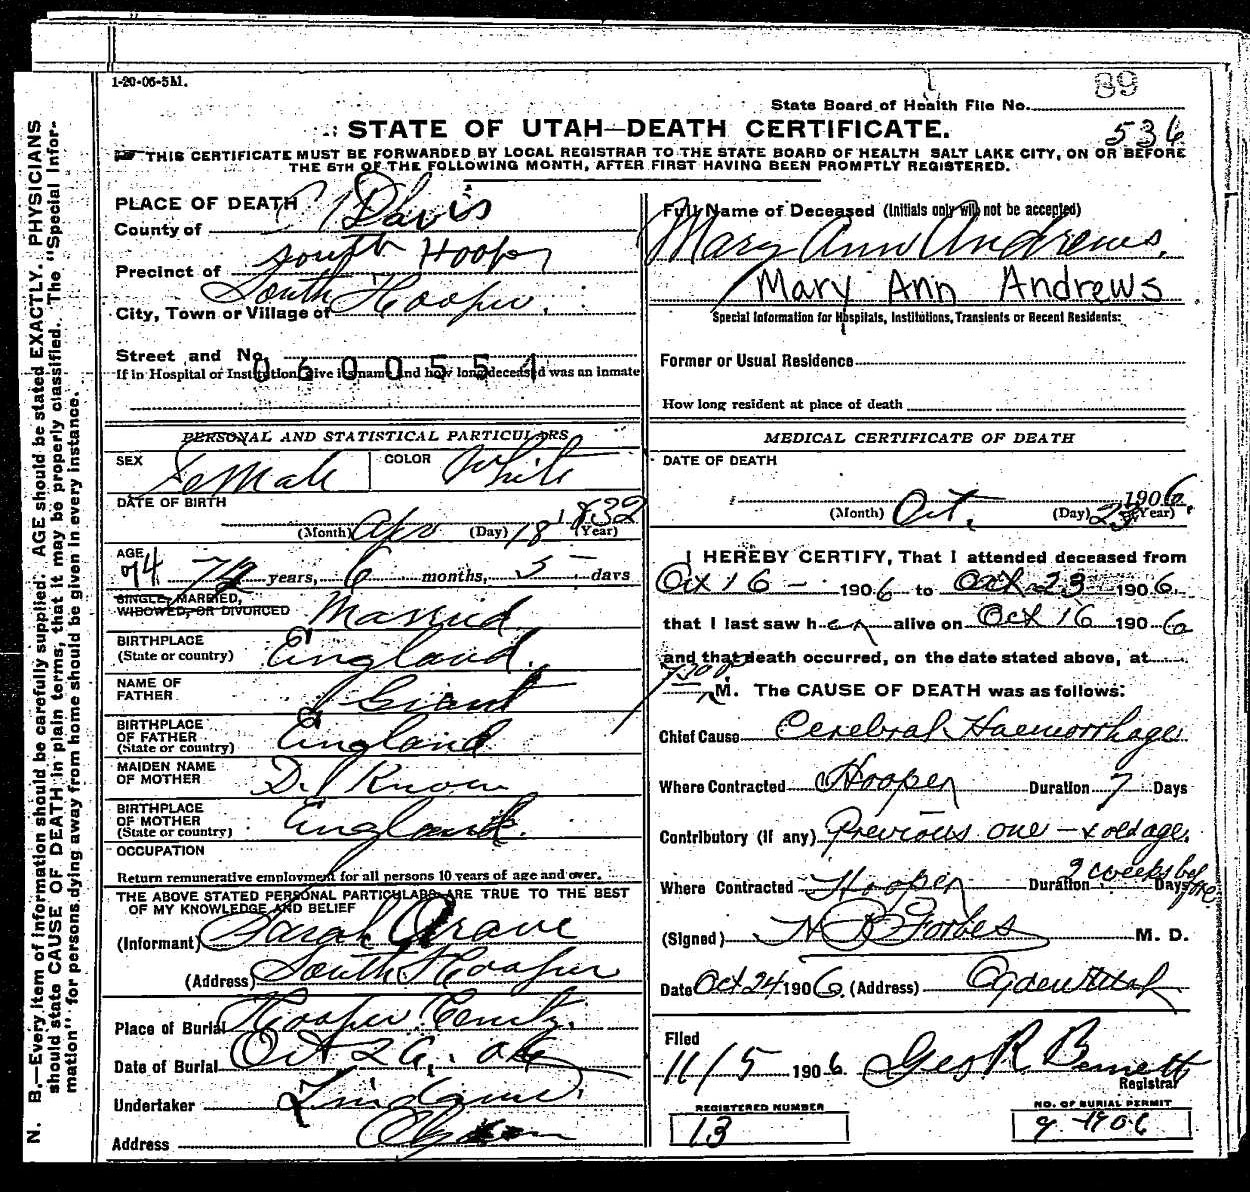 1-20-06-5M.
89
State Board of Health File No.
STATE OF UTAH—DEATH CERTIFICATE.
536
THIS CERTIFICATE MUST BE FORWARDED BY LOCAL REGISTRAR TO THE STATE BOARD OF HEALTH SALT LAKE CITY, ON OR BEFORE
THE 5TH OF THE FOLLOWING MONTH, AFTER FIRST HAVING BEEN PROMPTLY REGISTERED.
N. B.—Every item of information should be carefully supplied. AGE should be stated EXACTLY. PHYSICIANS
should state CAUSE OF DEATH in plain terms, that it may be properly classified. The "Special Infor-
mation" for persons dying away from home should be given in every instance.
PLACE OF DEATH
County of Davis
Precinct of South Hooper
City, Town or Village of South Hooper.
Street and No.
0600554
If in Hospital or Institution give its name and how long deceased was an inmate
PERSONAL AND STATISTICAL PARTICULARS
SEX Female COLOR White
DATE OF BIRTH
(Month) Apr (Day) 18 1832 (Year)
AGE
74 years, 6 months, 5 days
SINGLE, MARRIED,
WIDOWED, OR DIVORCED Married
BIRTHPLACE
(State or country) England.
NAME OF
FATHER
BIRTHPLACE
OF FATHER
(State or country) England
MAIDEN NAME
OF MOTHER D. Know
BIRTHPLACE
OF MOTHER
(State or country) England.
OCCUPATION
Return remunerative employment for all persons 10 years of age and over.
THE ABOVE STATED PERSONAL PARTICULARS ARE TRUE TO THE BEST
OF MY KNOWLEDGE AND BELIEF
(Informant) Sarah
(Address) South Hooper
Place of Burial Hooper
Date of Burial Oct 26. 06
Undertaker
Address
Full Name of Deceased (Initials only will not be accepted)
Mary Ann Andrews.
Mary Ann Andrews
Special Information for Hospitals, Institutions, Transients or Recent Residents:
Former or Usual Residence
How long resident at place of death
MEDICAL CERTIFICATE OF DEATH
DATE OF DEATH
(Month) Oct. (Day) 23 1906. (Year)
I HEREBY CERTIFY, That I attended deceased from
Oct 16 - 1906 to Oct 23 1906.
that I last saw her alive on Oct 16 1906
and that death occurred, on the date stated above, at
M. The CAUSE OF DEATH was as follows:
Chief Cause Cerebral Haemorrhage
Where Contracted Hooper Duration 7 Days
Contributory (if any) Previous one - & old age.
Where Contracted Hooper Duration 2 weeks before Days
(Signed) Forbes M. D.
Date Oct 24 1906 (Address) Ogden Utah
Filed
11/5 1906. Geo R. Bennett
Registrar
REGISTERED NUMBER
13
NO. OF BURIAL PERMIT
9-1906